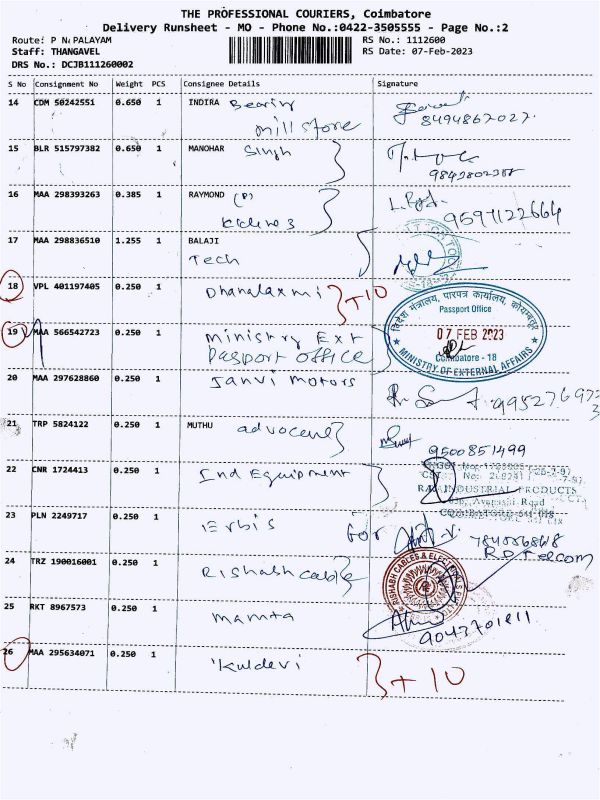 THE PROFESSIONAL COURIERS, Coimbatore
Delivery Runsheet - MO - Phone No.:0422-3505555 - Page No.:2
Route: P N PALAYAM
RS No.: 1112600
Staff: THANGAVEL
RS Date: 07-Feb-2023
DRS No.: DCJB111260002
S No Consignment No Weight PCS Consignee Details Signature
14 CDM 50242551 0.650 1 INDIRA Bearing
mill store
8494867027.
15 BLR 515797382 0.650 1 MANOHAR Singh
16 MAA 298393263 0.385 1 RAYMOND (P)
9597122664
17 MAA 298836510 1.255 1 BALAJI
Tech
18 VPL 401197405 0.250 1 Dhanalaxmi +10
विदेश मंत्रालय, पारपत्र कार्यालय, कोयम्बत्तूर
Passport Office
07 FEB 2023
Coimbatore - 18
MINISTRY OF EXTERNAL AFFAIRS
19 MAA 566542723 0.250 1 ministry Ext
Pasport office
20 MAA 297628860 0.250 1 Janvi motors
21 TRP 5824122 0.250 1 MUTHU
9500851499
22 CNR 1724413 0.250 1 Ind Equipment
INDUSTRIAL PRODUCTS
23 PLN 2249717 0.250 1 iErbis
For
RP Telecom
24 TRZ 190016001 0.250 1 Rishabh cable
RISHABH CABLES & ELECTRICALS
25 RKT 8967573 0.250 1 mamta
26 MAA 295634071 0.250 1 Kuldevi
+10